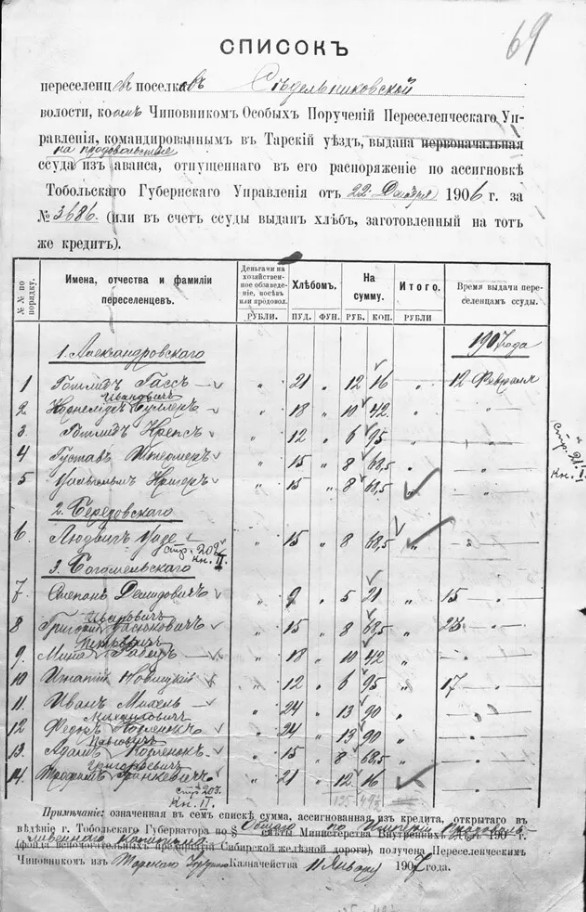 69
СПИСОКЪ
переселенцевъ поселковъ Седельниковской
волости, коимъ Чиновникомъ Особыхъ Порученій Переселенческаго Уп-
равленія, командированнымъ въ Тарскій уѣздъ, выдана первоначальная
на продовольствіе
ссуда изъ аванса, отпущеннаго въ его распоряженіе по ассигновкѣ
Тобольскаго Губернскаго Управленія отъ 22 Декабря 1906 г. за
№ 3686. (или въ счетъ ссуды выданъ хлѣбъ, заготовленный на тотъ
же кредитъ).
№№ по порядку. Имена, отчества и фамиліи переселенцевъ. Деньгами на хозяйственное обзаведеніе, посѣвъ или продовол. Хлѣбомъ. На сумму. Итого. Время выдачи переселенцамъ ссуды.
РУБЛИ. ПУД. ФУН. РУБ. КОП. РУБЛИ
1. Александровскаго 1907 года
1 Готлидъ Гассъ " 21 " 12 16 " 12 Февраля
Ивановичъ
2 " 18 " 10 42 " "
3 Готлидъ Крепсъ " 12 " 6 95 " "
4 Густавъ " 15 " 8 68,5 " "
5 " 15 " 8 68,5 " "
стр. 21 кн. II.
2. Бередовскаго
6. Людвигъ " 15 " 8 68,5 " "
стр. 209 кн. II.
3. Богашевскаго
7. Степанъ Демидовичъ " 9 " 5 21 " 15 "
8 Григорій " 15 " 8 68,5 " 23 "
9. " 18 " 10 42 " "
10 Игнатій Новицкій " 12 " 6 95 " 17 "
11 Иванъ Михель " 24 " 13 90 " "
12 Федоръ Корленокъ " 24 " 13 90 " "
13. Адамъ Корленокъ " 15 " 8 68,5 " "
Григорьевичъ
14. Трофимъ Гринкевичъ " 21 " 12 16 " "
стр. 207. кн. II.
Примѣчаніе: означенная въ семъ спискѣ сумма, ассигнованная изъ кредита, открытаго въ
вѣдѣніе г. Тобольскаго Губернатора по § Общаго по Имперіи Продоволь-
смѣты Министерства Внутреннихъ Дѣлъ 190 г.
ственнаго капитала
(фонда вспомогательныхъ предпріятій Сибирской желѣзной дороги), получена Переселенческимъ
Чиновникомъ изъ Тарскаго Казначейства 11 Января 1907 года.